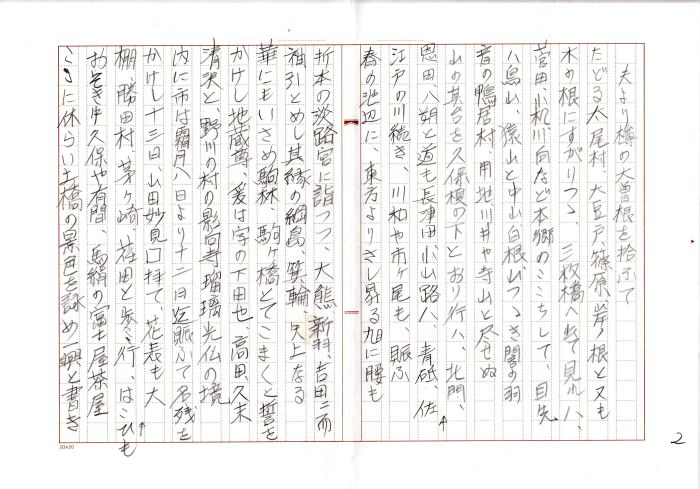 夫より樽の大曽根を拾ふて
たどる太尾村、大豆戸篠原、岸ノ根と又も
木の根にすがりつゝ、三枚橋へ出て見れハ、
菅田、小机、川向など本郷のここちして、目先
ハ鳥山、猿山と中山白根ハつゝき聞の羽
音の鴨居村、用地、川井や寺山と尽せぬ
山の其台を久保榎の下とおり行ハ、北門、
恩田、八朔と道も長津田、小山路ハ、青砥、佐
江戸の川続き、川和や市ヶ尾も、賑ふ
春の池辺に、東方よりさし昇る旭に腰も
折本の淡路宮に詣つつ、大熊、新羽、吉田ニ而
袖引とめし其縁の綱島、箕輪、矢上なる
華にもいさめ駒林、駒ヶ橋とてこまぐと誓を
かけし地蔵尊、爰は字の下田也、高田、久末
清沢と、野川の村の影向寺瑠璃光仏の境
内に市は霜月八日より十二日迄賑ふて名残を
かけし十三日、山田妙見口拝て、花表も大
棚、勝田村、茅ヶ崎、荏田と歩ミ行ハはこひも
おそき牛久保や有間、馬絹の富士屋茶屋
こゝに休らい土橋の景色を詠め一興と書き
20×20
2